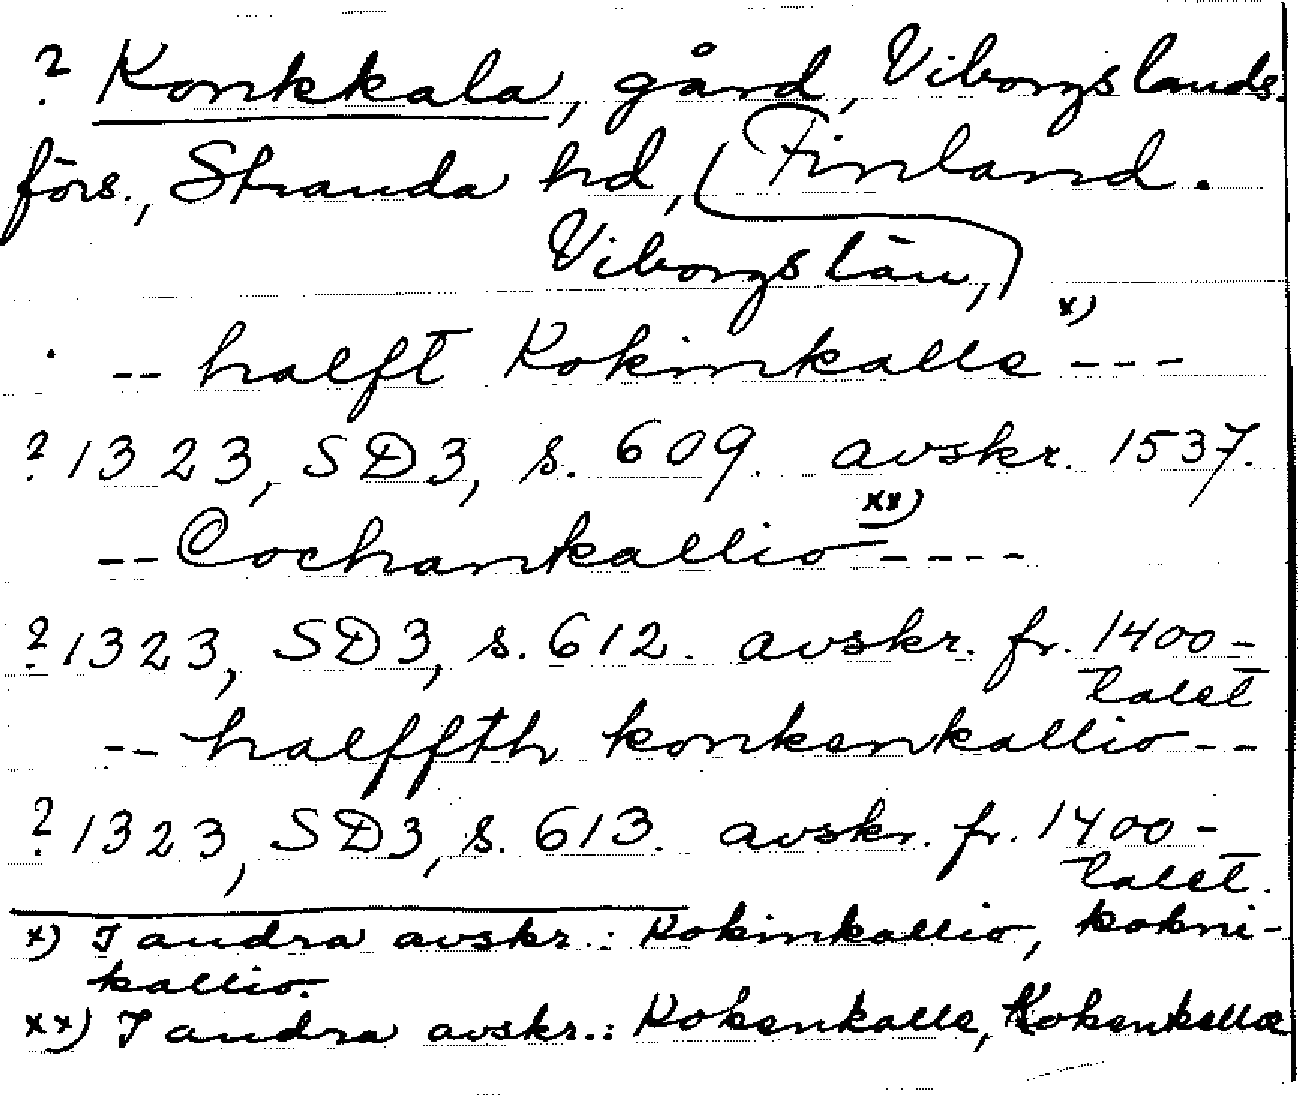 ? Konkkala, gård, Viborgs lands.
förs., Stranda hd, Finland.
Viborgs län,
-- halft Kokinkalle x) ---
? 1323, SD3, s. 609. avskr. 1537.
-- Cochankallio xx) ----
? 1323, SD3, s. 612. avskr. fr. 1400-
talet
-- halffth konkenkallio --
? 1323, SD3, s. 613. avskr. fr. 1400-
talet.
x) I andra avskr.: Kokinkallio, kokni-
kallio.
xx) I andra avskr.: Kokenkalle, Kokenkellæ